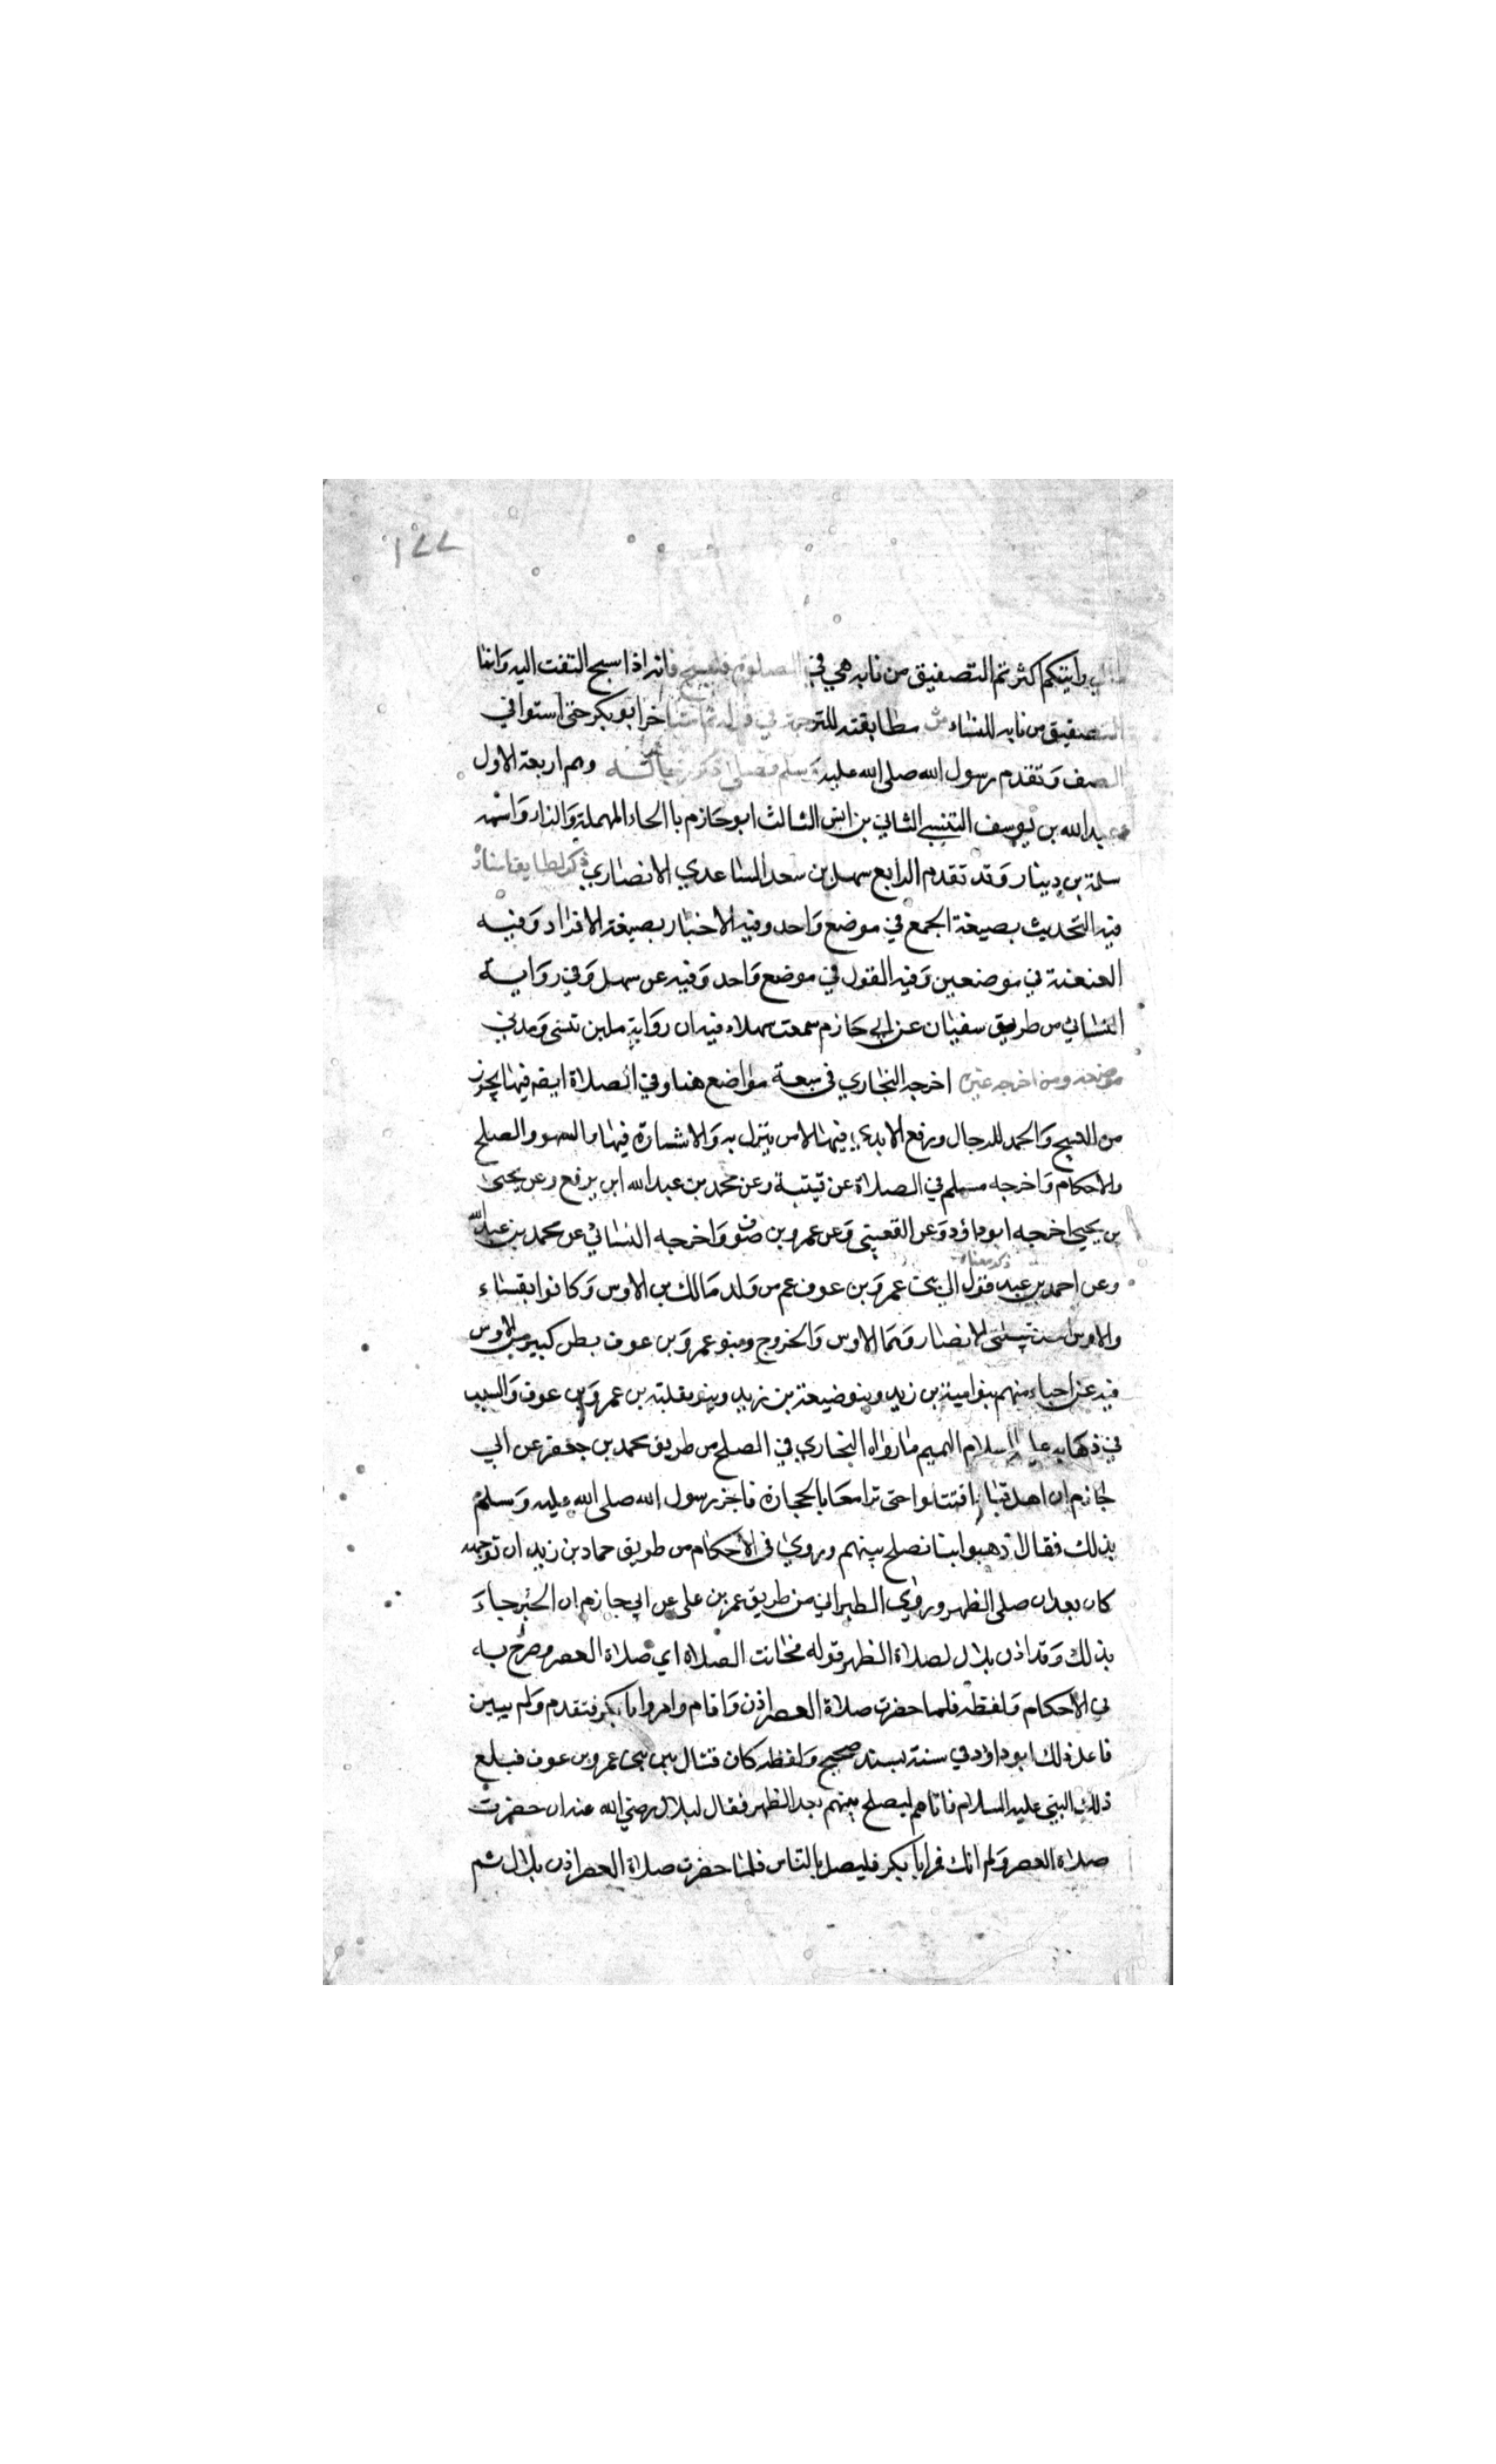 ١٢٢
رايتكم اكثرتم التصفيق من نابه شي في الصلاة فليسبح فانه اذا سبح التفت اليه وانما
التصفيق من نابه للنساء ش مطابقته للترجمة في قوله ثم استاخر ابو بكر حتى استوا في
الصف وتقدم رسول الله صلى الله عليه وسلم فصلى ذكر رجاله وهم اربعة الاول
عبد الله بن يوسف التنيسي الثاني بن انس الثالث ابو حازم باالحاء المهملة والزار واسمه
سلمة بن دينار وقد تقدم الرابع سهل بن سعد الساعدي الانصاري ذكر لطايف اسناده
فيه التحديث بصيغة الجمع في موضع واحد وفيه الاخبار بصيغة الافراد وفيه
العنعنة في موضعين وفيه القول في موضع واحد وفيه عن سهل وفي رواية
النسائي من طريق سفيان عن ابي حازم سمعت سهلا فيه ان رواية مابين تنسى ومدني
موضعه ومن اخرجه غيره اخرجه البخاري في سبعة مواضع هنا وفي الصلاة ايضا فيما يجوز
من التسبيح والحمد للرجال ورفع الايدي فيها لامر ينزل به والاشارة فيها والسهو والصلح
والاحكام واخرجه مسلم في الصلاة عن قتيبة وعن محمد بن عبد الله ابن بزيع وعن يحيى
بن يحيى اخرجه ابو داؤد وعن القعبني وعن عمرو بن عوف واخرجه النسائي عن محمد بن عبد الله
وعن احمد بن عبد ذكر معناه قوله الى بني عمرو بن عوف عم من ولد مالك بن الاوس وكانوا بقباء
والاوس احد قبيلتي الانصار وهما الاوس والخزرج وبنو عمرو بن عوف بطن كبير من الاوس
فيه عن احياء منهم بنو امية بن زيد وبنو ضبيعة بن زيد وبنو ثعلبة بن عمرو بن عوف والسبب
في ذهابه عليه السلام اليهم ما رواه البخاري في الصلح من طريق محمد بن جعفر عن ابي
حازم ان اهل قبا اقتتلوا حتى ترامعا بالحجارة فاخبر رسول الله صلى الله عليه وسلم
بذلك فقال اذهبوا بنا نصلح بينهم وروى في الاحكام من طريق حماد بن زيد ان توجهه
كان بعد ان صلى الظهر وروى الطبراني من طريق عمر بن علي عن ابي حازم ان الخبر جاء
بذلك وقد اذن بلال لصلاة الظهر قوله فحانت الصلاة اي صلاة العصر وصرح به
في الاحكام ولفظه فلما حضرت صلاة العصر اذن واقام وامر ابا بكر فتقدم ولم يبين
فاعل ذلك ابو داؤد في سننه بسند صحيح ولفظه كان قتال بين بني عمرو بن عوف فبلغ
ذلك النبي عليه السلام فاتاهم ليصلح بينهم بعد الظهر فقال لبلال رضي الله عنه ان حضرت
صلاة العصر ولم اتك فمر ابا بكر فليصل بالناس فلما حضرت صلاة العصر اذن بلال ثم